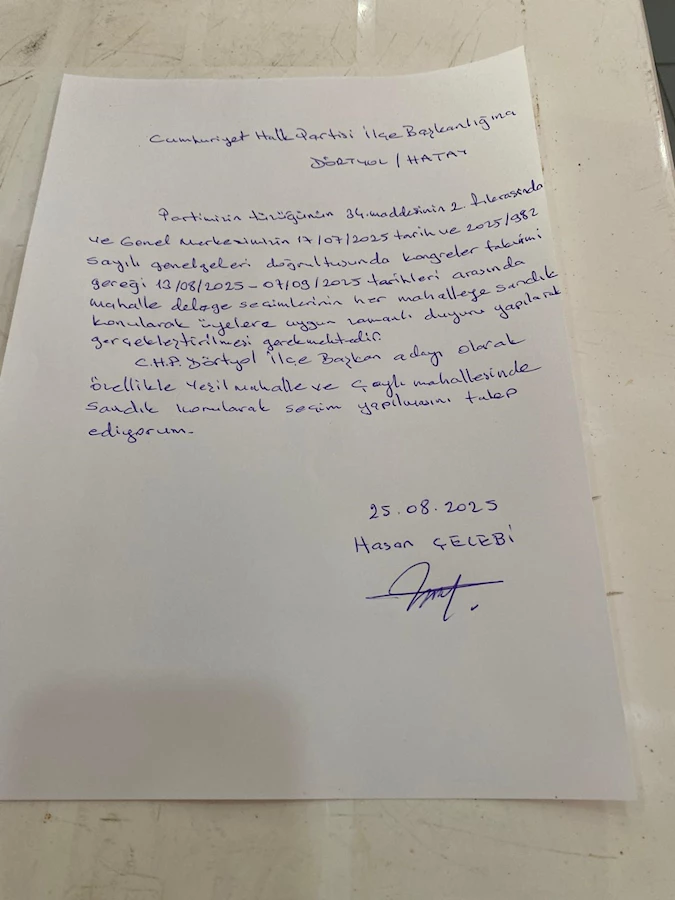 Cumhuriyet Halk Partisi İlçe Başkanlığına
DÖRTYOL / HATAY
Partimizin tüzüğünün 34. maddesinin 2. fıkrasında
ve Genel Merkezimizin 17/07/2025 tarih ve 2025/982
sayılı genelgeleri doğrultusunda kongreler takvimi
gereği 13/08/2025 - 07/09/2025 tarihleri arasında
mahalle delege seçimlerinin her mahalleye sandık
konularak üyelere uygun zamanlı duyuru yapılarak
gerçekleştirilmesi gerekmektedir.
C.H.P. Dörtyol İlçe Başkan adayı olarak
özellikle Yeşil Mahalle ve Çaylı mahallesinde
sandık konularak seçim yapılmasını talep
ediyorum.
25.08.2025
Hasan ÇELEBİ